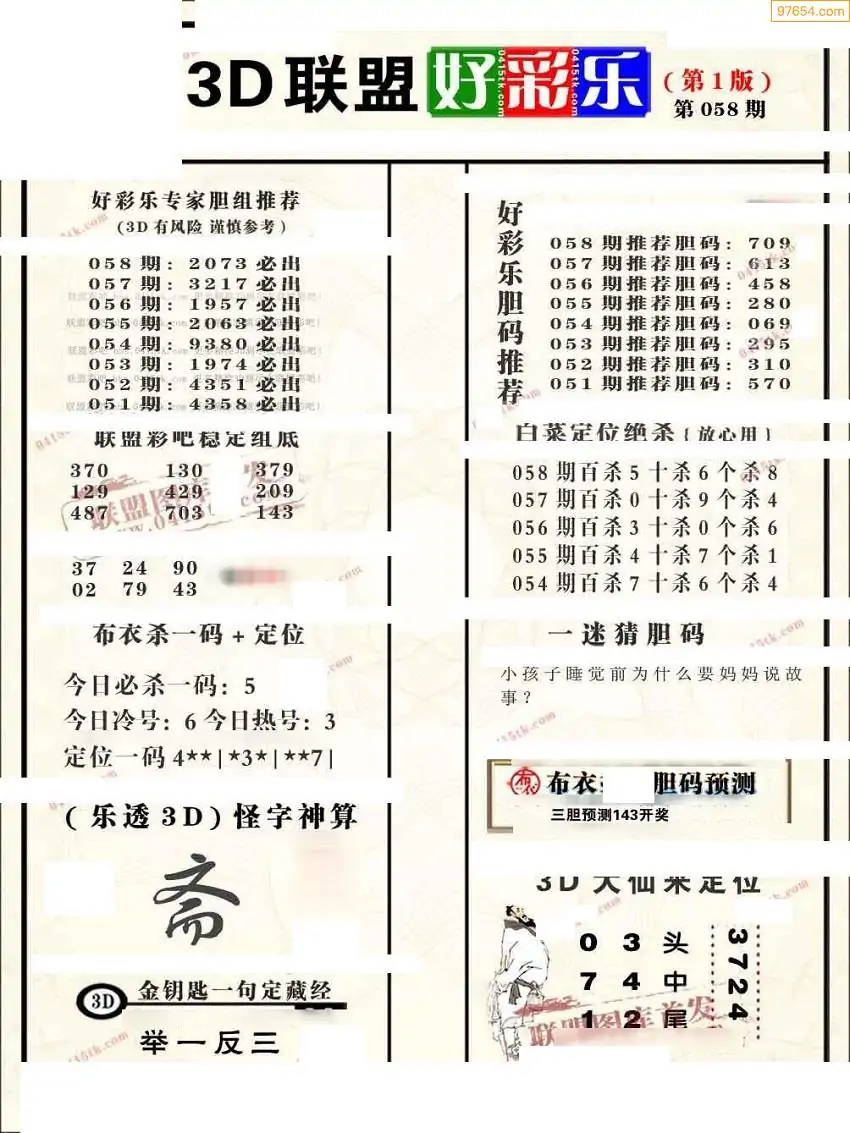 97654.com
3D联盟好彩乐
(第1版)
第058期
好彩乐专家胆组推荐
(3D有风险 谨慎参考)
058期: 2073必出
057期: 3217必出
056期: 1957必出
055期: 2063必出
054期: 9380必出
053期: 1974必出
052期: 4351必出
051期: 4358必出
联盟彩吧稳定组底
370 130 379
129 429 209
487 703 143
37 24 90
02 79 43
布衣杀一码+定位
今日必杀一码: 5
今日冷号: 6 今日热号: 3
定位一码 4**|*3*|**7|
(乐透3D)怪字神算
斋
3D 金钥匙一句定藏经
举一反三
好彩乐胆码推荐
058期推荐胆码: 709
057期推荐胆码: 613
056期推荐胆码: 458
055期推荐胆码: 280
054期推荐胆码: 069
053期推荐胆码: 295
052期推荐胆码: 310
051期推荐胆码: 570
白菜定位绝杀{放心用}
058期百杀5十杀6个杀8
057期百杀0十杀9个杀4
056期百杀3十杀0个杀6
055期百杀4十杀7个杀1
054期百杀7十杀6个杀4
一迷猜胆码
小孩子睡觉前为什么要妈妈说故
事?
布衣 胆码预测
三胆预测143开奖
3D大仙来定位
0 3 头
7 4 中
1 2 尾
3724
联盟图库首发